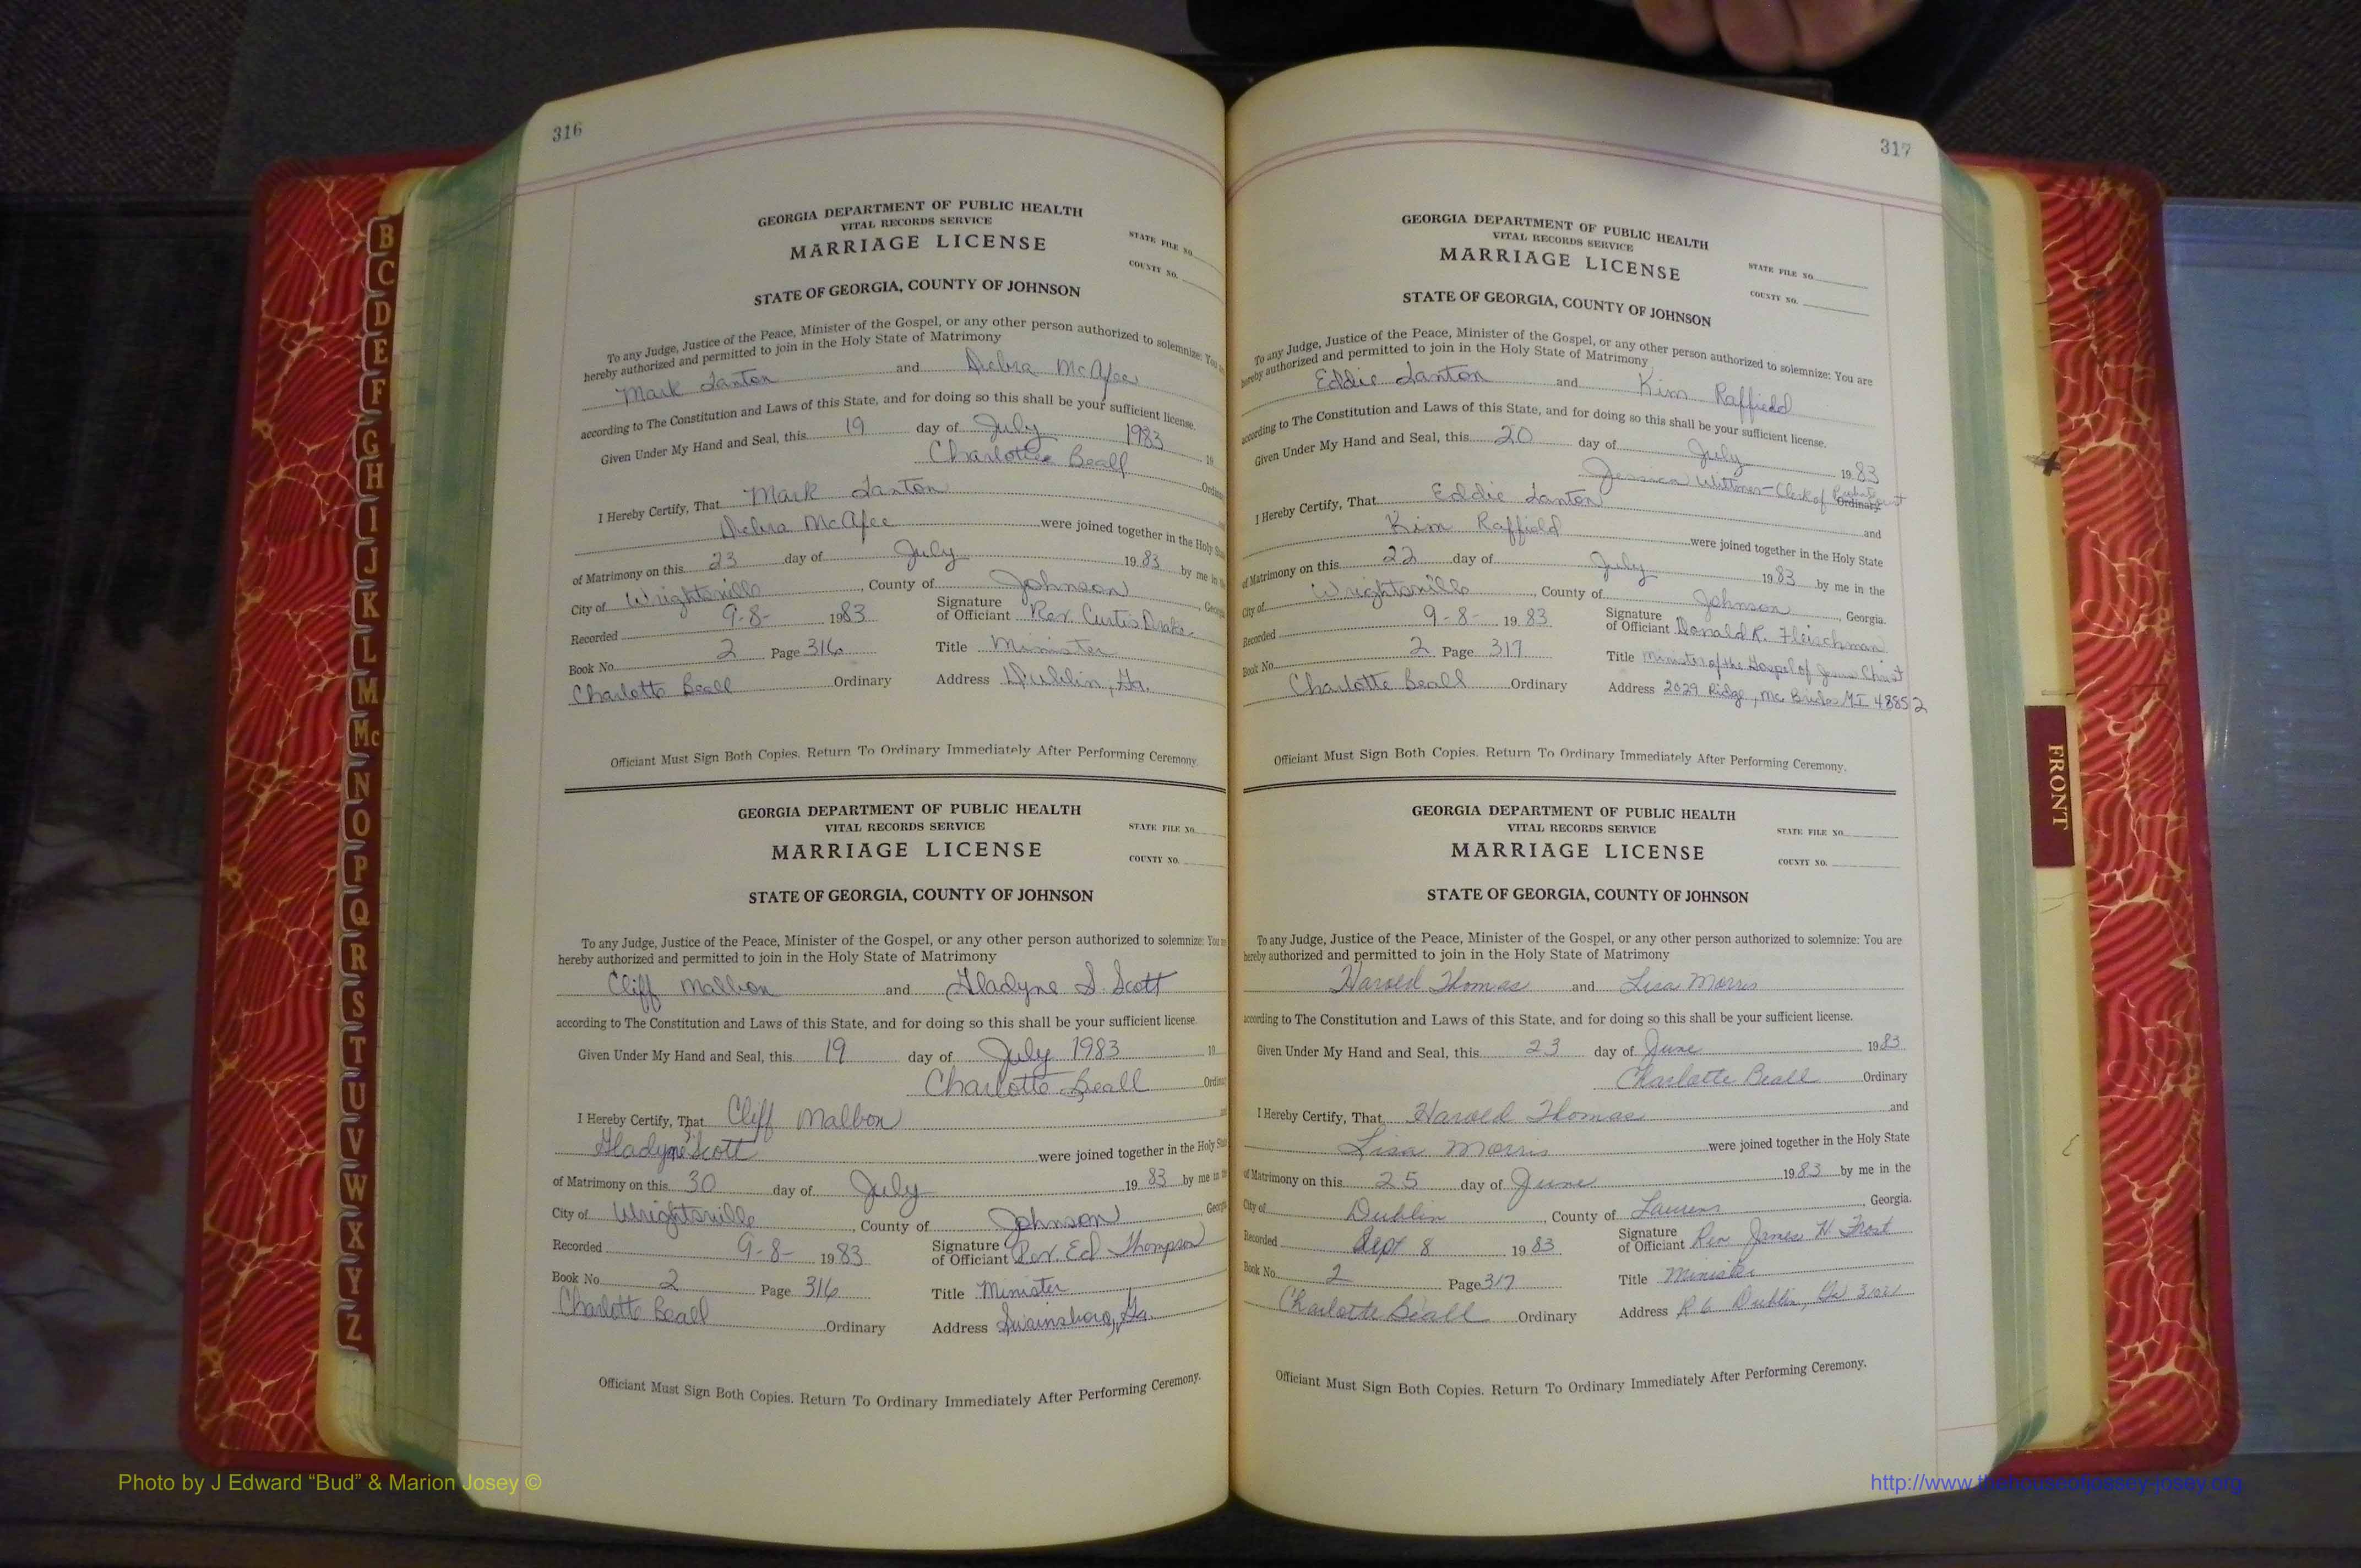 316
GEORGIA DEPARTMENT OF PUBLIC HEALTH
VITAL RECORDS SERVICE
MARRIAGE LICENSE
STATE FILE NO.
COUNTY NO.
STATE OF GEORGIA, COUNTY OF JOHNSON
To any Judge, Justice of the Peace, Minister of the Gospel, or any other person authorized to solemnize: You
hereby authorized and permitted to join in the Holy State of Matrimony
Mark Lanton and Debra McAfee
according to The Constitution and Laws of this State, and for doing so this shall be your sufficient license.
Given Under My Hand and Seal, this 19 day of July 1983 19
Charlotte Beall
I Hereby Certify, That Mark Lanton
Debra McAfee were joined together in the Holy
of Matrimony on this 23 day of July 1983 by me in
City of Wrightsville, County of Johnson
Recorded 9-8- 1983 Signature of Officiant Rev. Curtis Drake
Book No. 2 Page 316 Title Minister
Charlotte Beall Ordinary Address Dublin, Ga.
Officiant Must Sign Both Copies. Return To Ordinary Immediately After Performing Ceremony.
GEORGIA DEPARTMENT OF PUBLIC HEALTH
VITAL RECORDS SERVICE
MARRIAGE LICENSE
STATE FILE NO.
COUNTY NO.
STATE OF GEORGIA, COUNTY OF JOHNSON
To any Judge, Justice of the Peace, Minister of the Gospel, or any other person authorized to solemnize: You
hereby authorized and permitted to join in the Holy State of Matrimony
Cliff Malbon and Gladyne S. Scott
according to The Constitution and Laws of this State, and for doing so this shall be your sufficient license.
Given Under My Hand and Seal, this 19 day of July 1983 19
Charlotte Beall
I Hereby Certify, That Cliff Malbon
Gladyne S. Scott were joined together in the Holy
of Matrimony on this 30 day of July 1983 by me in
City of Wrightsville, County of Johnson
Recorded 9-8- 1983 Signature of Officiant Rev. Ed Thompson
Book No. 2 Page 316 Title Minister
Charlotte Beall Ordinary Address Swainsboro, Ga.
Officiant Must Sign Both Copies. Return To Ordinary Immediately After Performing Ceremony.
317
GEORGIA DEPARTMENT OF PUBLIC HEALTH
VITAL RECORDS SERVICE
MARRIAGE LICENSE
STATE FILE NO.
COUNTY NO.
STATE OF GEORGIA, COUNTY OF JOHNSON
To any Judge, Justice of the Peace, Minister of the Gospel, or any other person authorized to solemnize: You are
hereby authorized and permitted to join in the Holy State of Matrimony
Eddie Lanton and Kim Raffield
according to The Constitution and Laws of this State, and for doing so this shall be your sufficient license.
Given Under My Hand and Seal, this 20 day of July 1983
Jessica Wittmer-Clerk of Ordinary
I Hereby Certify, That Eddie Lanton and
Kim Raffield were joined together in the Holy State
of Matrimony on this 22 day of July 1983 by me in the
City of Wrightsville, County of Johnson, Georgia.
Recorded 9-8- 1983 Signature of Officiant Donald R. Fleischman
Book No. 2 Page 317 Title Minister of the Gospel of Jesus Christ
Charlotte Beall Ordinary Address 2029 Ridge, Mc Brides MI 48852
Officiant Must Sign Both Copies. Return To Ordinary Immediately After Performing Ceremony.
GEORGIA DEPARTMENT OF PUBLIC HEALTH
VITAL RECORDS SERVICE
MARRIAGE LICENSE
STATE FILE NO.
COUNTY NO.
STATE OF GEORGIA, COUNTY OF JOHNSON
To any Judge, Justice of the Peace, Minister of the Gospel, or any other person authorized to solemnize: You are
hereby authorized and permitted to join in the Holy State of Matrimony
Harold Thomas and Lisa Morris
according to The Constitution and Laws of this State, and for doing so this shall be your sufficient license.
Given Under My Hand and Seal, this 23 day of June 1983
Charlotte Beall Ordinary
I Hereby Certify, That Harold Thomas and
Lisa Morris were joined together in the Holy State
of Matrimony on this 25 day of June 1983 by me in the
City of Dublin, County of Laurens, Georgia.
Recorded Sept 8 1983 Signature of Officiant Rev James H. Frost
Book No. 2 Page 317 Title Minister
Charlotte Beall Ordinary Address R 6 Dublin, Ga
Officiant Must Sign Both Copies. Return To Ordinary Immediately After Performing Ceremony.
B
C
D
E
F
G
H
I
J
K
L
M
Mc
N
O
P
Q
R
S
T
U
V
W
X
Y
Z
FRONT
Photo by J Edward “Bud” & Marion Josey ©
http://www.thehouseofjossey-josey.org